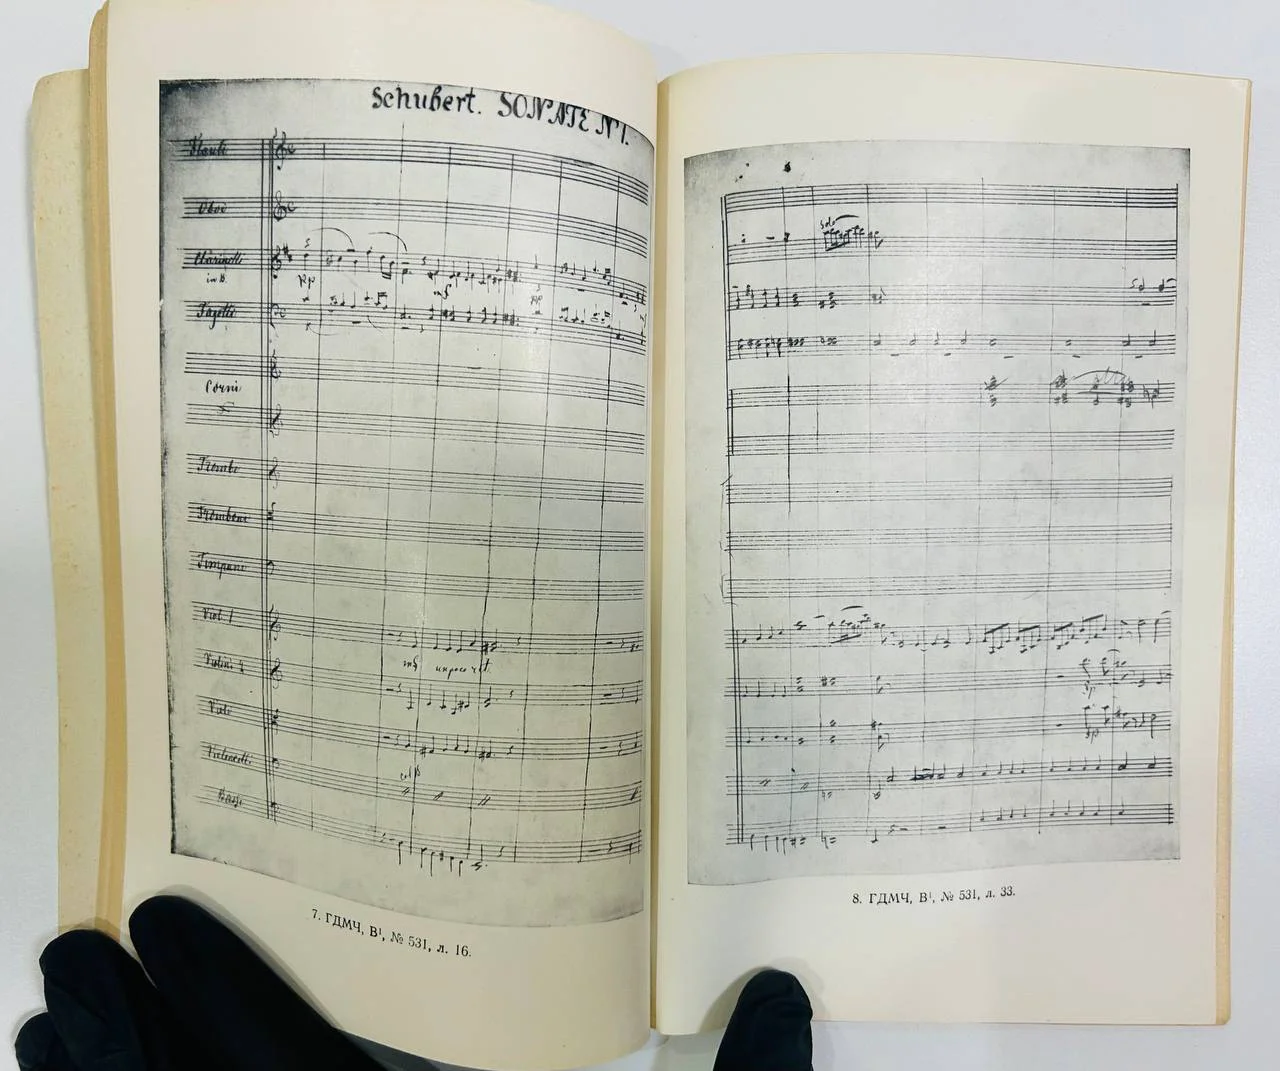 Schubert. SONATE N 1.
Flauti
Oboe
Clarinetti
in B.
Fagotti
Corni
Trombe
Tromboni
Timpani
Viol. 1
Violini 2
Viole
Violoncelli
Bassi
mf
7. ГДМЧ, В¹, № 531, л. 16.
Solo
8. ГДМЧ, В¹, № 531, л. 33.